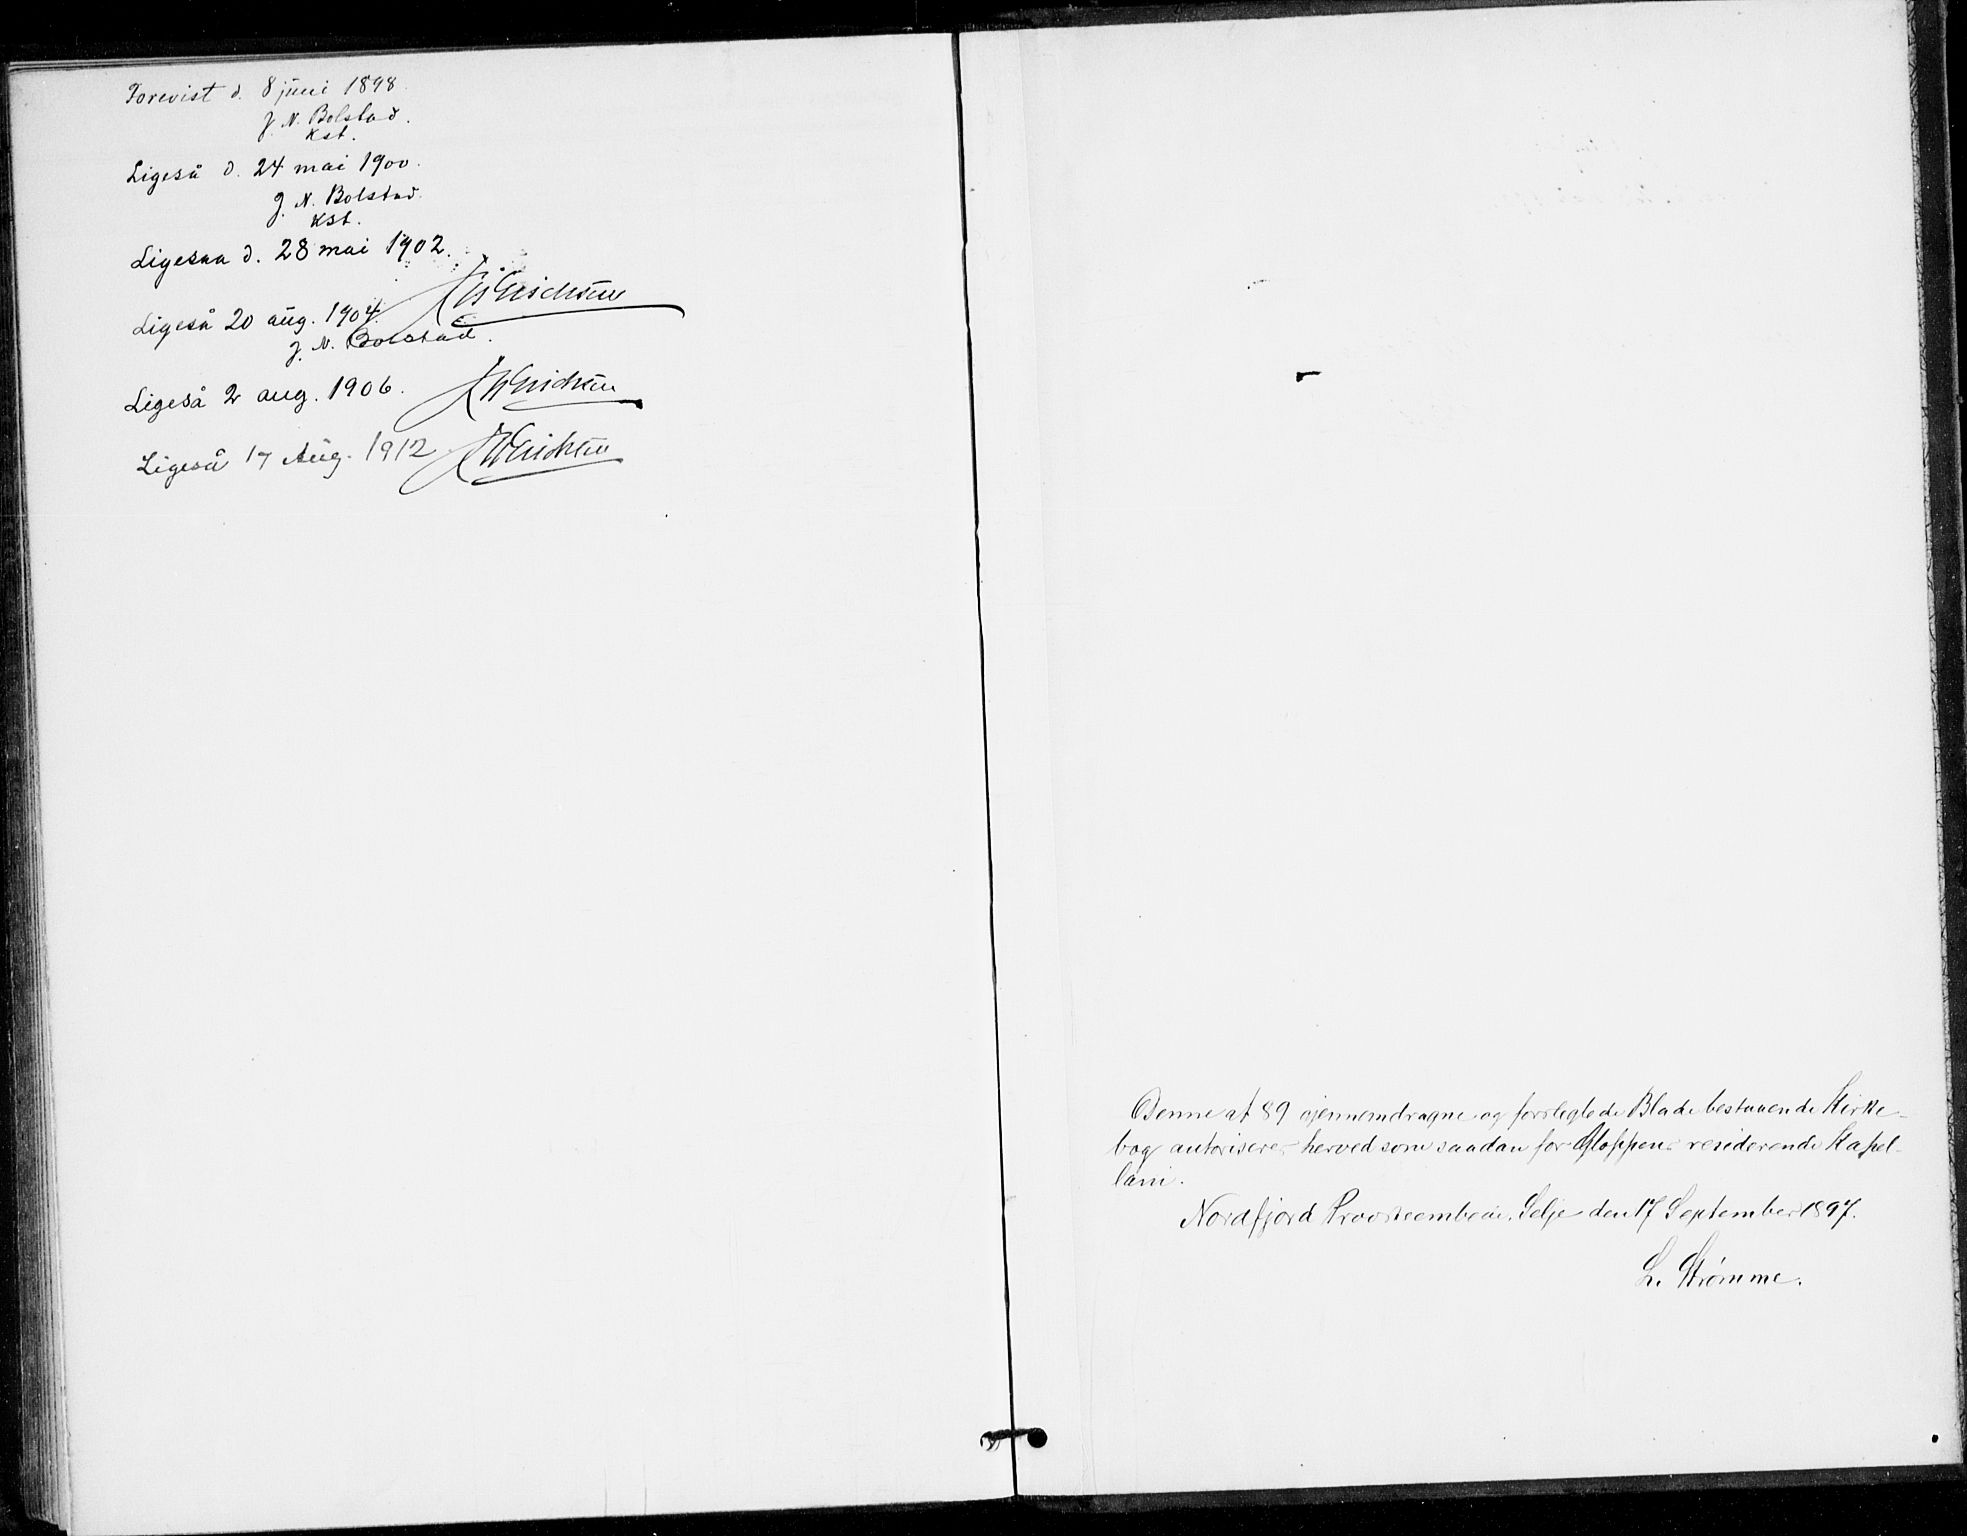 Forevist d. 8 juni 1898.
J. N. Bolstad.
Kst.
Ligeså d. 24 mai 1900.
J. N. Bolstad.
Kst.
Ligesaa d. 28 mai 1902.
Erichsen
Ligeså 20 aug. 1904.
J. N. Bolstad.
Ligeså 2 aug. 1906. Erichsen
Ligeså 17 Aug. 1912 Erichsen
Denne af 89 gjennemdragne og forseglede Blade bestaaende Kirke-
bog autoriseres herved som saadan for Gloppens residerende Kapel-
lani.
Nordfjord Provsteembede, Selje den 17 September 1897.
L. Strømme.